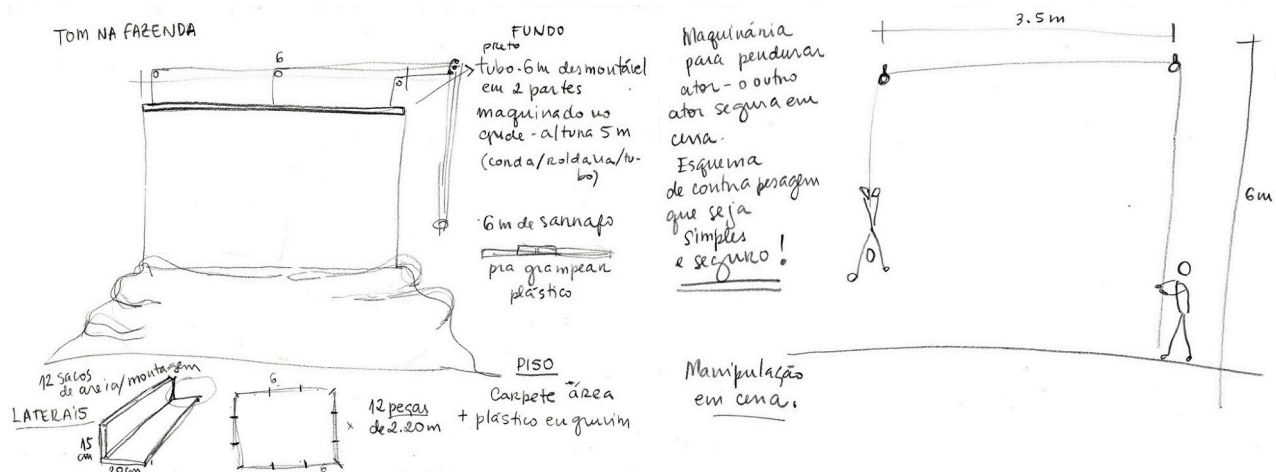 TOM NA FAZENDA
6
FUNDO
preto
tubo-6m desmontável
em 2 partes
maquinado no
grude - altura 5m
(corda/roldana/tu-
bo)
6m de sarrafo
pra grampear
plástico
PISO
Carpete área
+ plástico
12 sacos
de areia/montagem
LATERAIS
15
cm
20cm
6
6
x
12 peças
de 2.20m
Maquinária
para pendurar
ator - o outro
ator segura em
cena.
Esquema
de contra pesagem
que seja
simples
e seguro!
Manipulação
em cena.
3.5m
6m